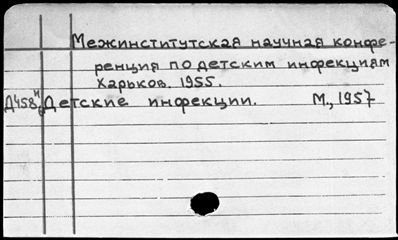 Межинститутская научная конфе-
ренция по детским инфекциям
Харьков. 1955.
Д458 Детские инфекции. М., 1957